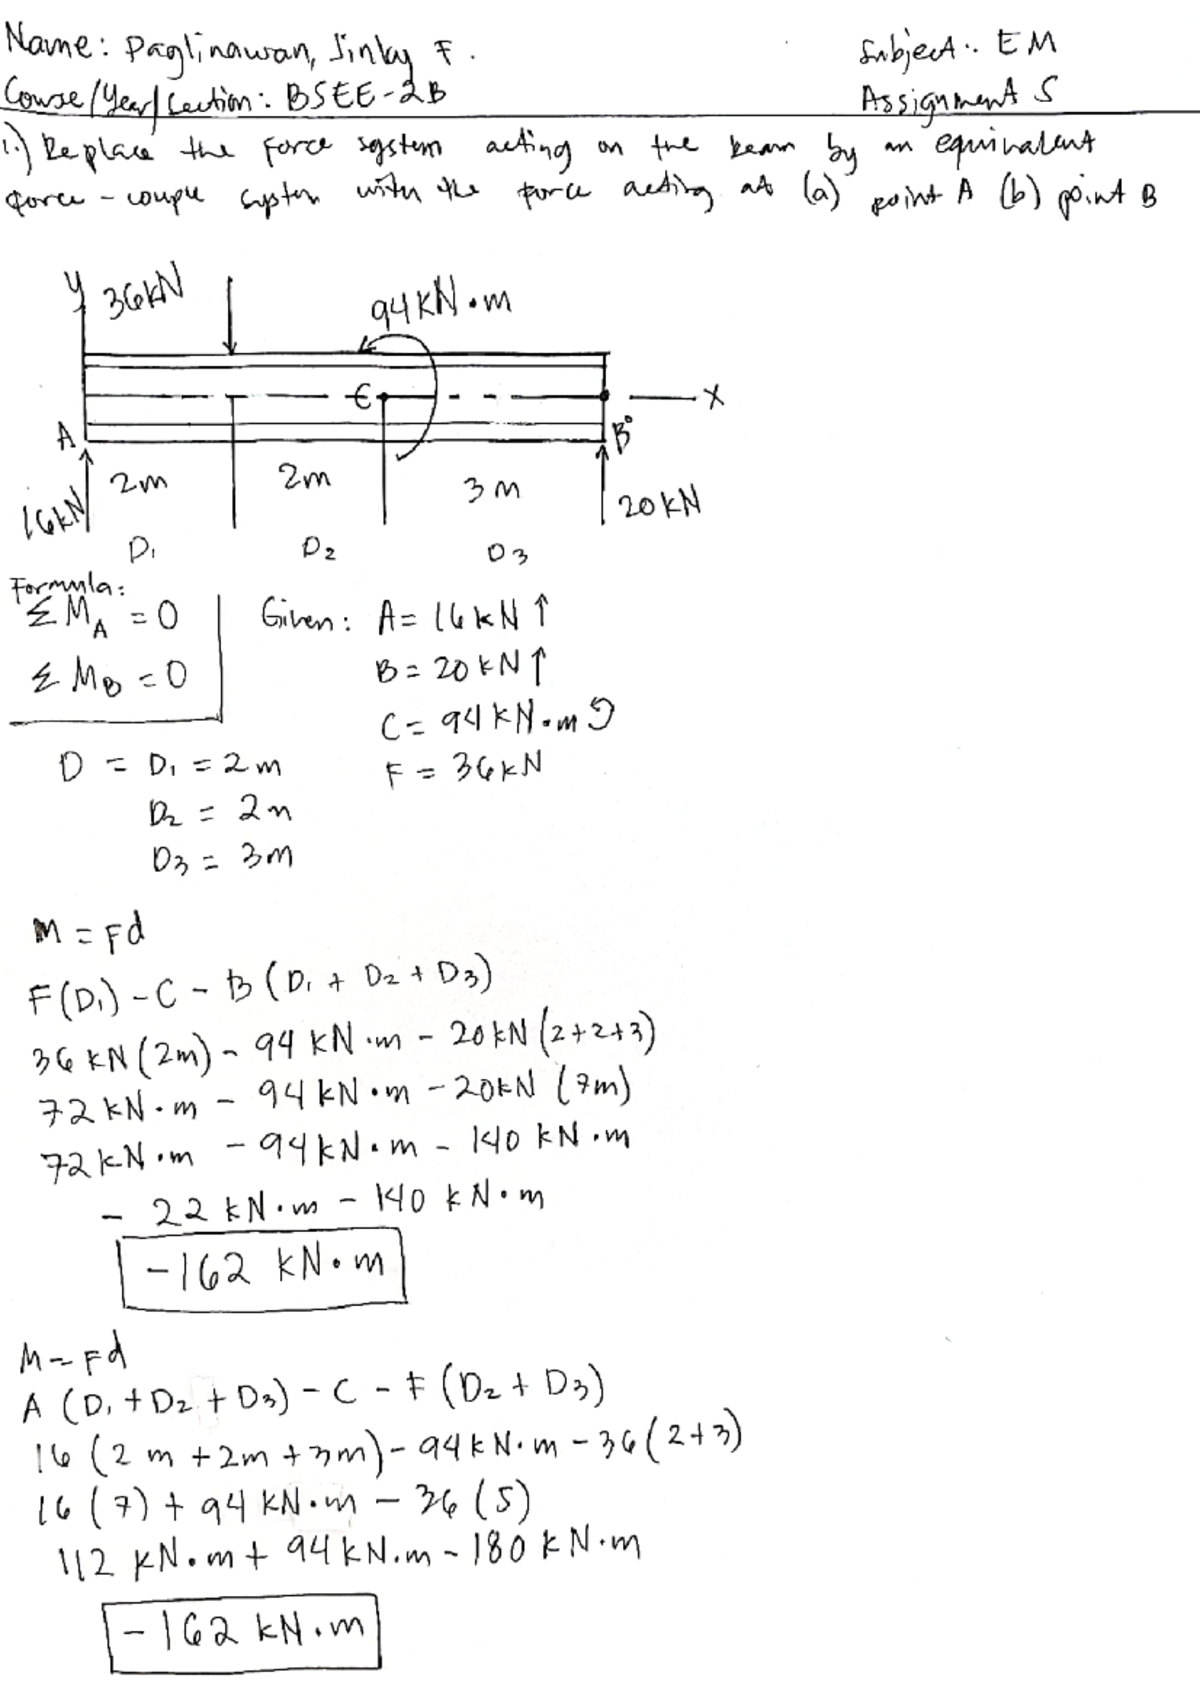 Name: Paglinawan, Jinky F.
Subject: EM
Course/Year/Section: BSEE-2B
Assignment 5
1.) Replace the force system acting on the beam by an equivalent
force-couple system with the force acting at (a) point A (b) point B
y 36kN
94kN·m
C
X
A
B
2m 2m 3m
16kN
20kN
D1 D2 D3
Formula:
ΣMA = 0
Given: A = 16kN ↑
ΣMB = 0
B = 20kN ↑
C = 94kN·m ↺
D = D1 = 2m
F = 36kN
D2 = 2m
D3 = 3m
M = Fd
F(D1) - C - B(D1 + D2 + D3)
36kN(2m) - 94kN·m - 20kN(2+2+3)
72kN·m - 94kN·m - 20kN(7m)
72kN·m - 94kN·m - 140kN·m
- 22kN·m - 140kN·m
-162 kN·m
M = Fd
A(D1 + D2 + D3) - C - F(D2 + D3)
16(2m + 2m + 3m) - 94kN·m - 36(2+3)
16(7) + 94kN·m - 36(5)
112 kN·m + 94kN·m - 180kN·m
-162 kN·m